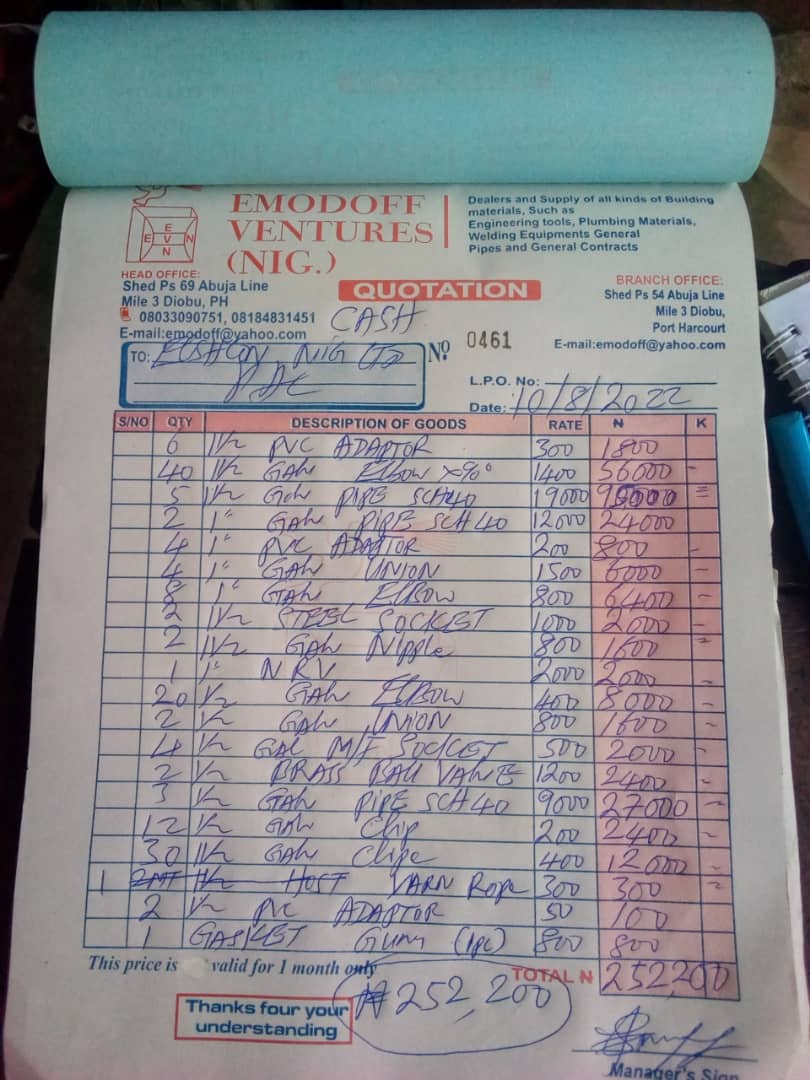 EMODOFF
VENTURES
(NIG.)
E E N
V
N
Dealers and Supply of all kinds of Building
materials, Such as
Engineering tools, Plumbing Materials,
Welding Equipments General
Pipes and General Contracts
HEAD OFFICE:
Shed Ps 69 Abuja Line
Mile 3 Diobu, PH
08033090751, 08184831451
E-mail:emodoff@yahoo.com
QUOTATION
CASH
BRANCH OFFICE:
Shed Ps 54 Abuja Line
Mile 3 Diobu,
Port Harcourt
E-mail:emodoff@yahoo.com
Nº 0461
TO: NIG LTD
L.P.O. No:
Date: 10/8/2022
S/NO QTY DESCRIPTION OF GOODS RATE N K
6 1½ PVC ADAPTOR 300 1800
40 1½ GAL ELBOW x90° 1400 56000 -
5 1½ GAL PIPE SCH40 19000 95000 =
2 1" GAL PIPE SCH 40 12000 24000
4 1" PVC ADAPTOR 200 800 -
4 1" GAL UNION 1500 6000 -
8 1" GAL ELBOW 800 6400 -
2 1½ STEEL SOCKET 1000 2000 -
2 1½ GAL Nipple 800 1600 =
1 1" NRV 2000 2000 -
20 ½ GAL ELBOW 400 8000 -
2 ½ GAL UNION 800 1600 -
4 ½ GAL M/F SOCKET 500 2000 -
2 ½ BRASS BALL VALVE 1200 2400 -
3 ½ GAL PIPE SCH40 9000 27000 -
12 ½ GAL Clip 200 2400 -
30 1½ GAL Clipe 400 12000 -
1 2MT 1½ HOST YARN Rope 300 300 =
2 ½ PVC ADAPTOR 50 100
1 GASKET GUM (1pc) 800 800
This price is valid for 1 month only
TOTAL N 252,200
₦252,200
Thanks four your
understanding
Manager's Sign